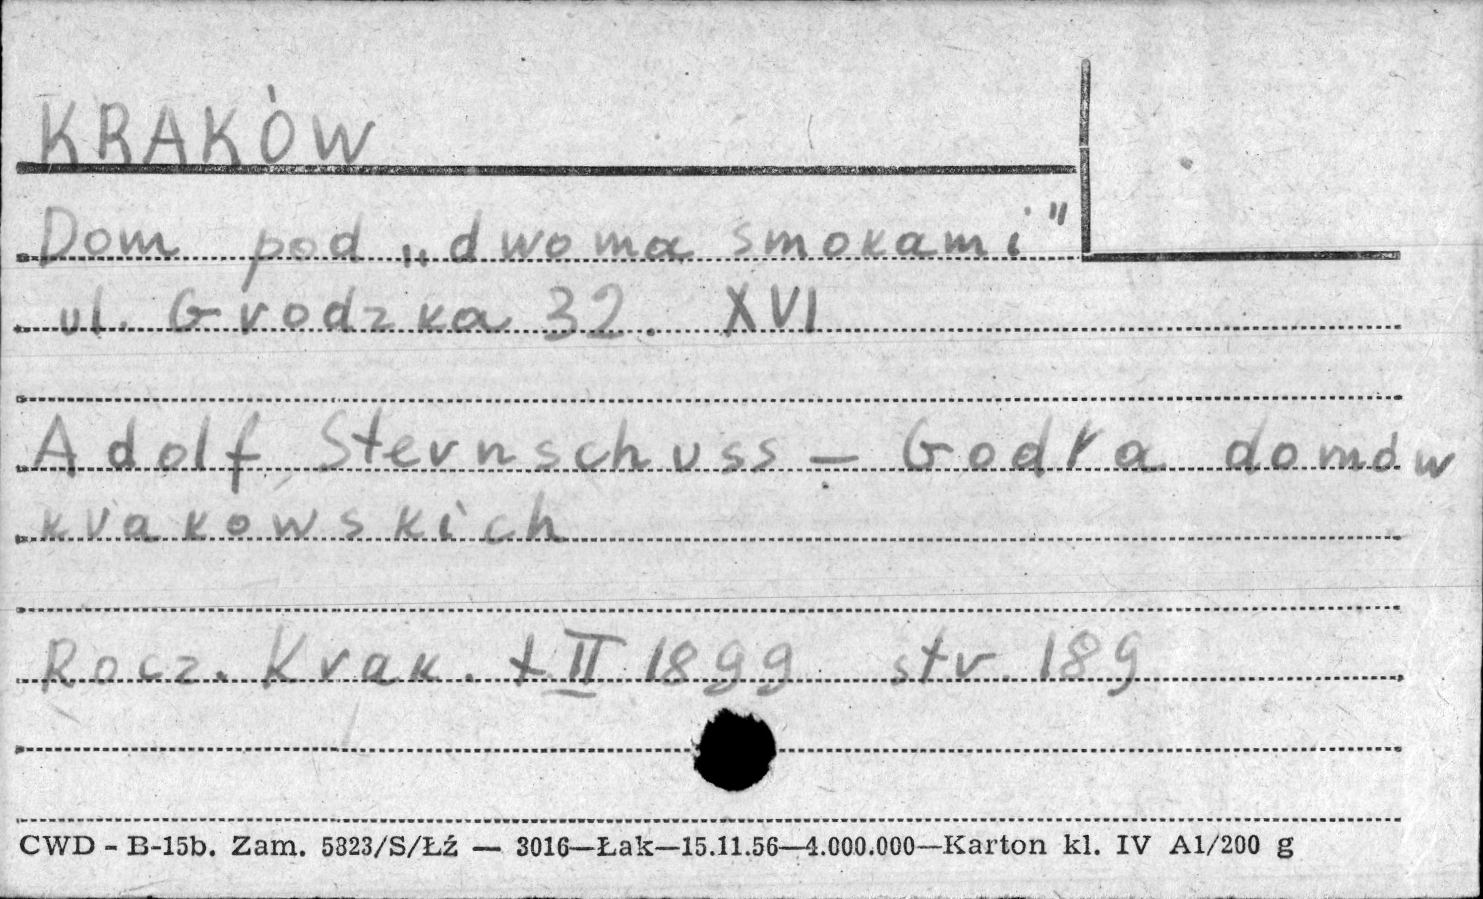 KRAKÓW
Dom pod „dwoma smokami"
ul. Grodzka 32. XVI
Adolf Sternschuss – Godła domów
krakowskich
Rocz. Krak. t. II 1899 str. 189
CWD - B-15b. Zam. 5323/S/Łź — 3016—Łak—15.11.56—4.000.000—Karton kl. IV A1/200 g